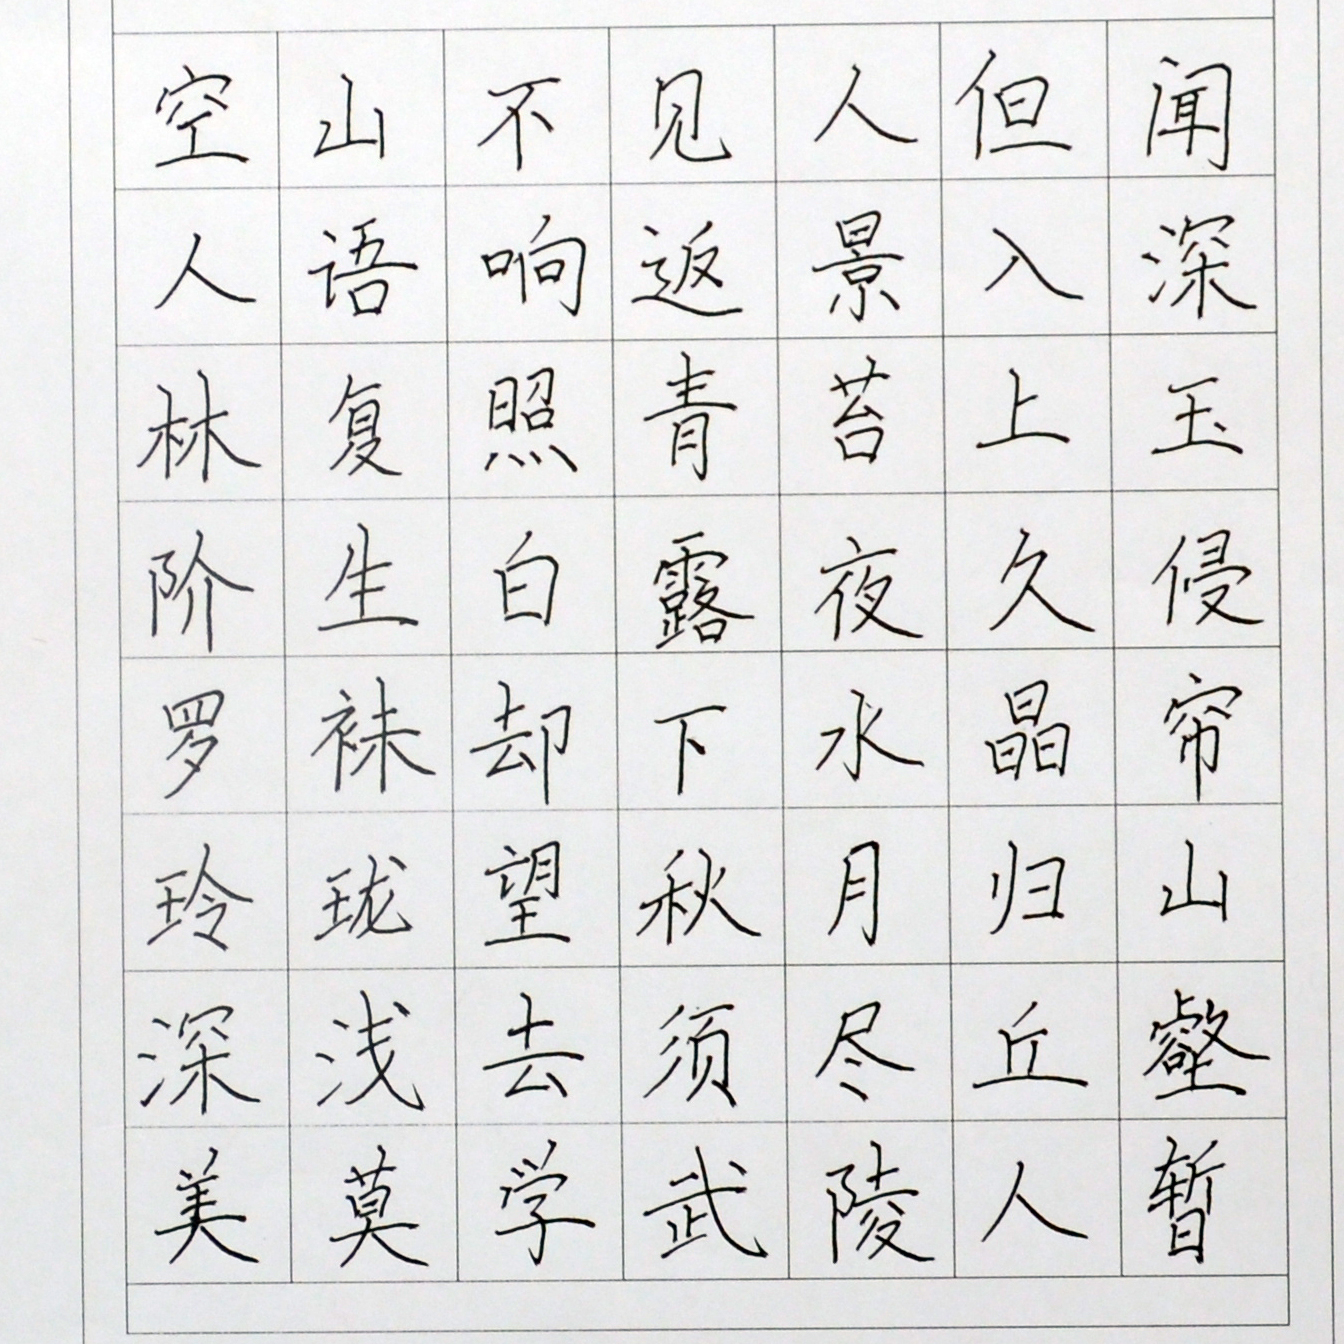 空山不见人但闻
人语响返景入深
林复照青苔上玉
阶生白露夜久侵
罗袜却下水晶帘
玲珑望秋月归山
深浅去须尽丘壑
美莫学武陵人暂